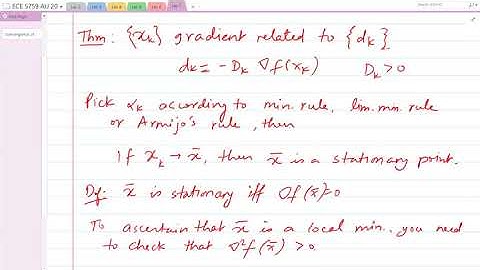 ECE 5759 AU 20
Thm: {x_k} gradient related to {d_k}
d_k = -D_k ∇f(x_k) D_k > 0
Pick α_k according to min. rule, lim. min. rule
or Armijo's rule, then
If x_k → x̄, then x̄ is a stationary point.
Def: x̄ is stationary iff ∇f(x̄)=0
To ascertain that x̄ is a local min., you need
to check that ∇²f(x̄) > 0